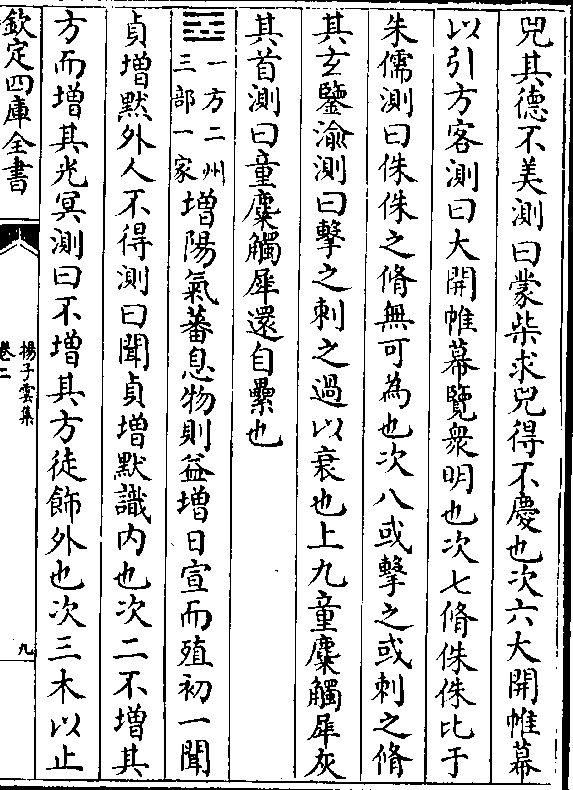 兕其德不美測曰蒙柴求兕得不慶也次六大開帷幕
以引方客測曰大開帷幕覽衆明也次七脩侏侏比于
朱儒測曰侏侏之脩無可為也次八或擊之或刺之脩
其玄鑒渝測曰擊之刺之過以衰也上九童麋觸犀灰
其首測曰童麋觸犀還自纍也
一方二州
三部一家
增陽氣蕃息物則益增日宣而殖初一聞
貞增默外人不得測曰聞貞增默識内也次二不增其
方而增其光冥測曰不增其方徒飾外也次三木以止
欽定四庫全書
揚子雲集
卷二
九